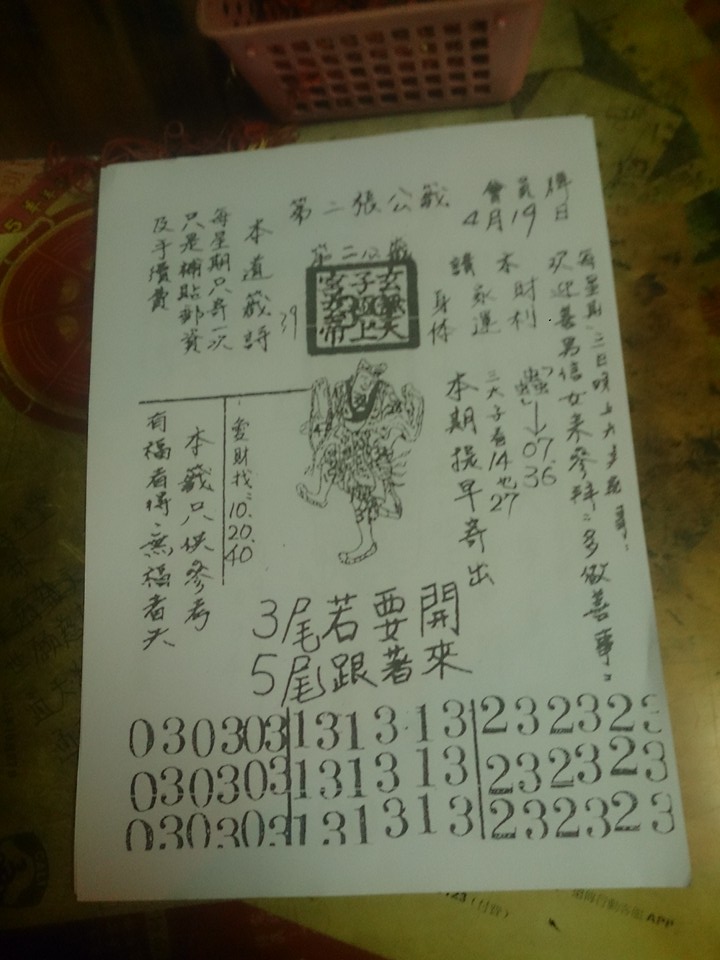 第二張公籤
會員牌
4月19日
每星期一三日晚上
歡迎善男信女來參拜：多做善事：
本財利
請家運
身体
07.
36
三太子看14也27
本期提早寄出
第二公籤
39
本道籤詩
每星期只寄一次
只是補貼郵資
及手續費
愛財找：10.20.40
本籤只供參考
有福者得：無福者失
3尾若要開
5尾跟著來
030303 131313 232323
030303 131313 232323
030303 131313 232323